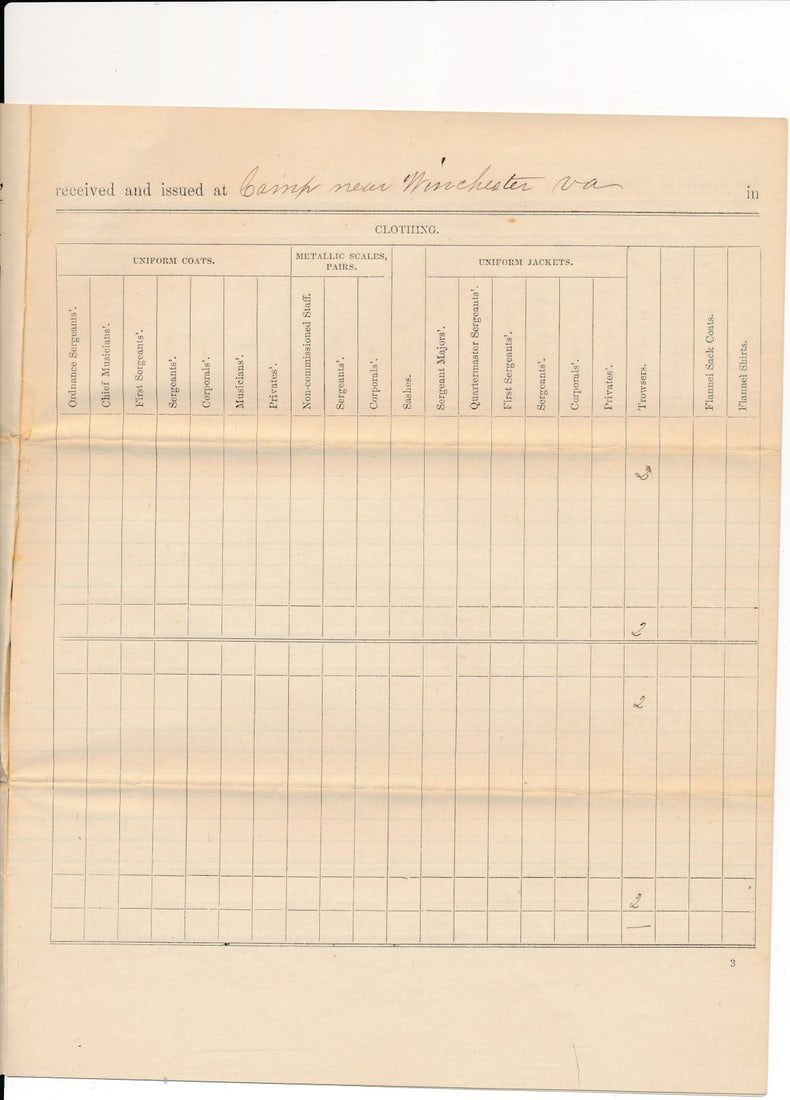 received and issued at Camp near Winchester va in
CLOTHING.
UNIFORM COATS.
METALLIC SCALES, PAIRS.
UNIFORM JACKETS.
Ordnance Sergeants'.
Chief Musicians'.
First Sergeants'.
Sergeants'.
Corporals'.
Musicians'.
Privates'.
Non-commissioned Staff.
Sergeants'.
Corporals'.
Sashes.
Sergeant Majors'.
Quartermaster Sergeants'.
First Sergeants'.
Sergeants'.
Corporals'.
Privates'.
Trowsers.
Flannel Sack Coats.
Flannel Shirts.
2
2
2
2
3